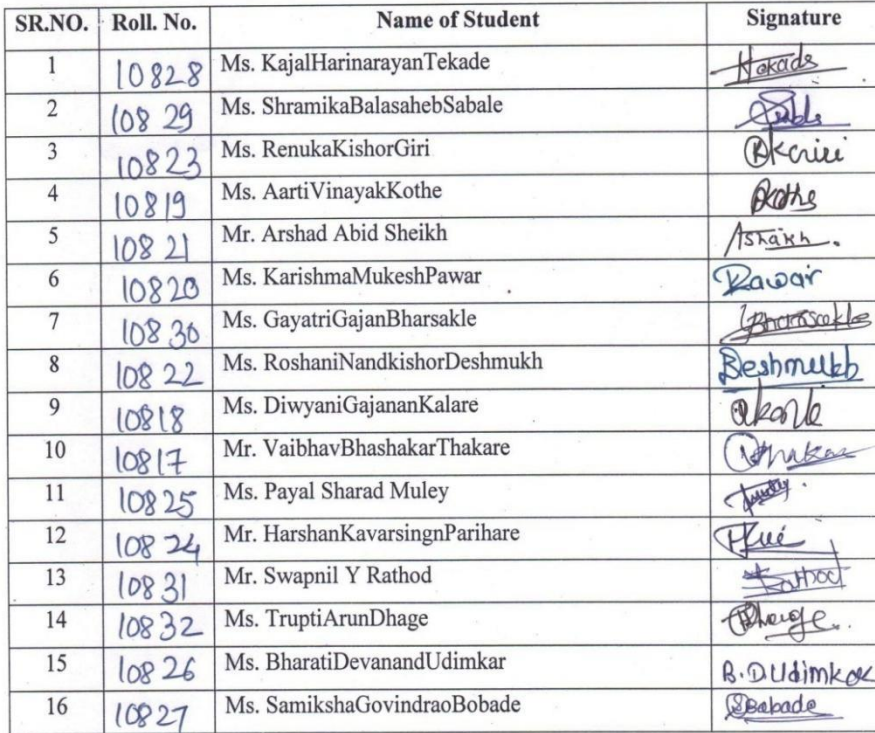 SR.NO. Roll. No. Name of Student Signature
1 10828 Ms. KajalHarinarayanTekade
2 10829 Ms. ShramikaBalasahebSabale
3 10823 Ms. RenukaKishorGiri
4 10819 Ms. AartiVinayakKothe
5 10821 Mr. Arshad Abid Sheikh
6 10820 Ms. KarishmaMukeshPawar
7 10830 Ms. GayatriGajanBharsakle
8 10822 Ms. RoshaniNandkishorDeshmukh Deshmukh
9 10818 Ms. DiwyaniGajananKalare
10 10817 Mr. VaibhavBhashakarThakare
11 10825 Ms. Payal Sharad Muley
12 10824 Mr. HarshanKavarsingnParihare
13 10831 Mr. Swapnil Y Rathod Rathod
14 10832 Ms. TruptiArunDhage
15 10826 Ms. BharatiDevanandUdimkar B.D.Udimkar
16 10827 Ms. SamikshaGovindraoBobade